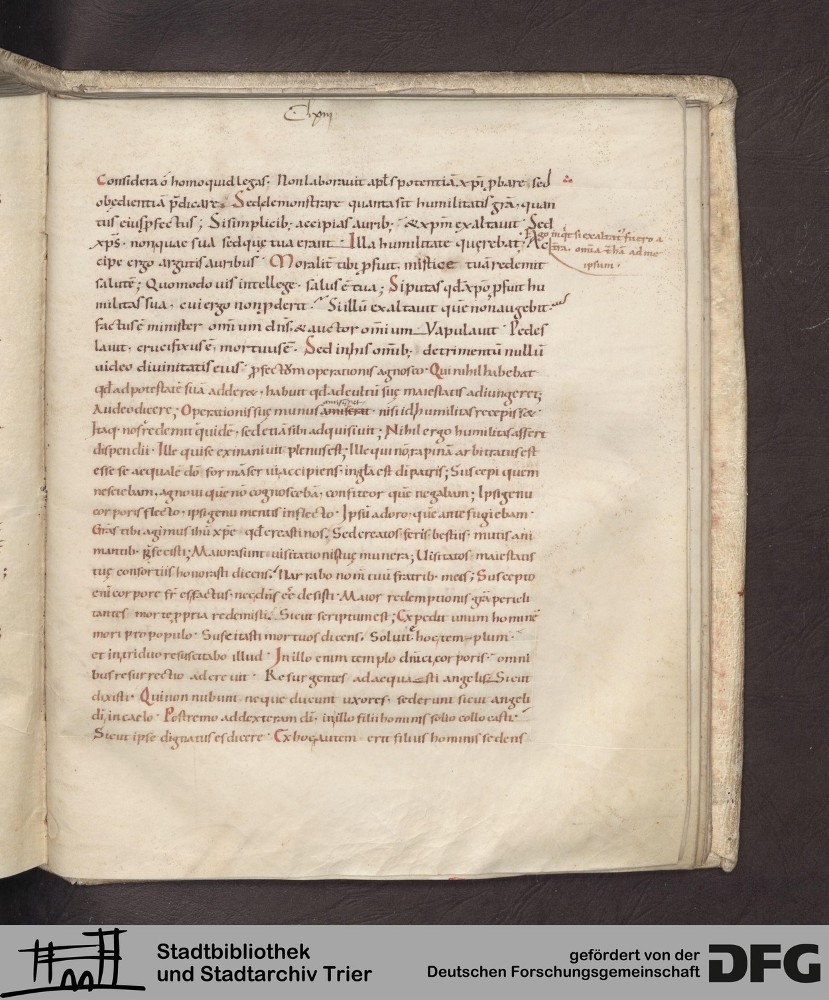 C xiii
Considera o homo quid legas; Non laboravit apłs potentiā xp̄i p̱bare sed
obędientiā p̄dicare. Sed demonstrare quanta sit humilitatis gr̄a. quan
tus eius p̱fectus; Si simplicib; accipias aurib; & xp̄m exaltavit Sed
xp̄s. non quae sua sed quę tua erant. Illa humilitate querebat; Ac
cipe ergo argutis auribus Moralit̄ tibi p̱fuit, mistice tuā redemit
Ego inq̄t si exaltat' fuero a
t̄ra. omīa t̄hā ad me
ipsum.
salutē; Quomodo vis intellege. salus ē tua; Si putas qđ a xp̄o p̱fuit hu
militas sua. cui ergo non p̱derit. Si illū exaltavit quē non augebit.
factus ē minister omīum dn̄s. & auctor omīum. Vapulavit Pedes
lavit. crucifixus ē. mortuus ē. Sed in his omīb; detrimentū nullū
video divinitatis eius. p̱fectum operationis agnosco. Qui nihil habebat
qđ ad potestatē suā adderet. habuit qđ ad cultū suę maiestatis adiungeret;
Audeo dicere; Operationis suę munus amiserat nisi id humilitas recepisset
Itaq. nos redemit quidē. sed etiā sibi adquisivit; Nihil ergo humilitas affert
dispendii. Ille qui se exinanivit plenus est; Ille qui nō rapinā arbitratus est
esse se aequalē dō. formā servi accipiens. in gl̄a est dī patris; Suscepi quem
nesciebam, agnovi quē nō cognoscebā. confiteor quē negabam; Ipsi genu
corporis flecto. ipsi genu mentis inflecto. Ipsū adoro. quē ante fugiebam.
Grās tibi agimus ihū xp̄e. qđ creasti nos. Sed creatos feris bestiis mutis ani
mantib. p̱fecisti; Maiora sunt visitationis tuę munera; Visitatos maiestatis
tuę consortiis honorasti dicens. Narrabo nom̄ tuū fratrib. meis; Suscepto
enī corpore fr̄ es factus. nec dn̄s eē desisti. Maior redemptionis gr̄a pericli
tantes morte p̱pria redemisti. Sicut scriptum est; Expedit unum hominē
mori pro populo. Suscitasti mortuos dicens. Solvite hoc templum.
et in triduo resuscitabo illud. In illo enim templo dn̄ici corporis. omni
bus resurrectio adcrevit. Resurgentes adaequasti angelis Sicut
dixisti. Qui non nubunt neque ducunt uxores. sed erunt sicut angeli
dī in caelo. Postremo ad dexteram dī. in illo filii hominis solio collocasti.
Sicut ipse dignatus es dicere. Ex hoc autem. erit filius hominis sedens
Stadtbibliothek
und Stadtarchiv Trier
gefördert von der
Deutschen Forschungsgemeinschaft
DFG